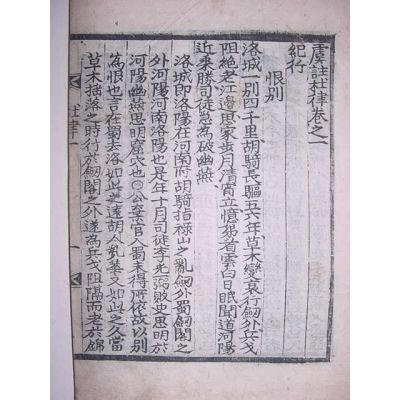 虞註杜律卷之一
紀行
恨別
洛城一別四千里胡騎長驅五六年草木變衰行劒外兵戈
阻絶老江邊思家步月清宵立憶弟看雲白日眠聞道河陽
近乘勝司徒急為破幽燕
洛城即洛陽在河南府胡騎指祿山之亂劒外蜀劒閣之
外河陽河南洛陽也是年十月司徒李光弼敗史思明於
河陽幽燕思明窟穴也○公棄官入蜀未得所依故以別
為恨也言在蜀去洛如此之遠胡人亂華又如此之久當
草木揺落之時行於劒閣之外遂為兵戈阻隔而老於錦
杜律一
一